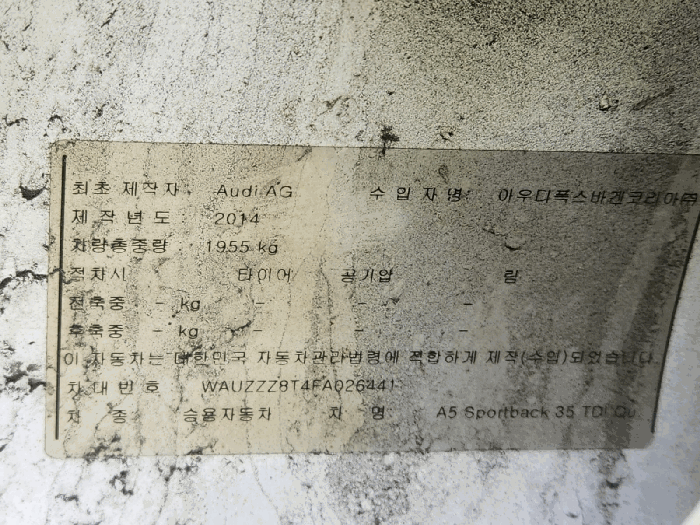 최초 제작자 : Audi AG 수 입 자 명 : 아우디폭스바겐코리아㈜
제 작 년 도 : 2014
차량총중량 : 1955 kg
적차시 타이어 공기압 림
전축중 - kg - - -
후축중 - kg - - -
이 자동차는 대한민국 자동차관리법령에 적합하게 제작(수입)되었습니다.
차 대 번 호 WAUZZZ8T4FA026441
차 종 승용자동차 차 명 A5 Sportback 35 TDI Qu.